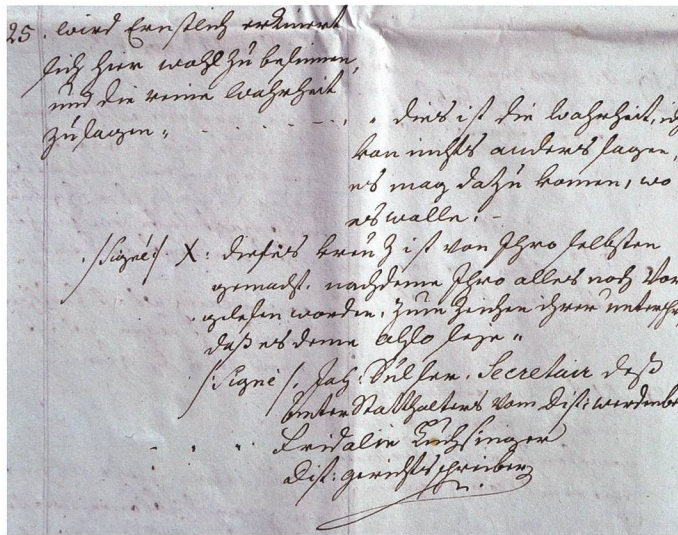 25. wird Ernstlich erkinert
sich hier wohl zu besinnen,
und die reine Wahrheit
zu sagen„
„ dies ist die Wahrheit, ich
kan nichts anders sagen,
es mag dazu komen, wo
es walle. –
/Signé/ X: dieses kreuz ist von Ihro selbsten
gemacht. nachdeme Ihro alles noch Vor
gelesen worden. zum zeichen ihrer unterschr
daß es deme also seye„
/Signé/. Joh: Süsser. Secretair deß
Unter Statthalters vom Dist: werdenbe
Fridolin Luchsinger
Dist: gerichtschreiber